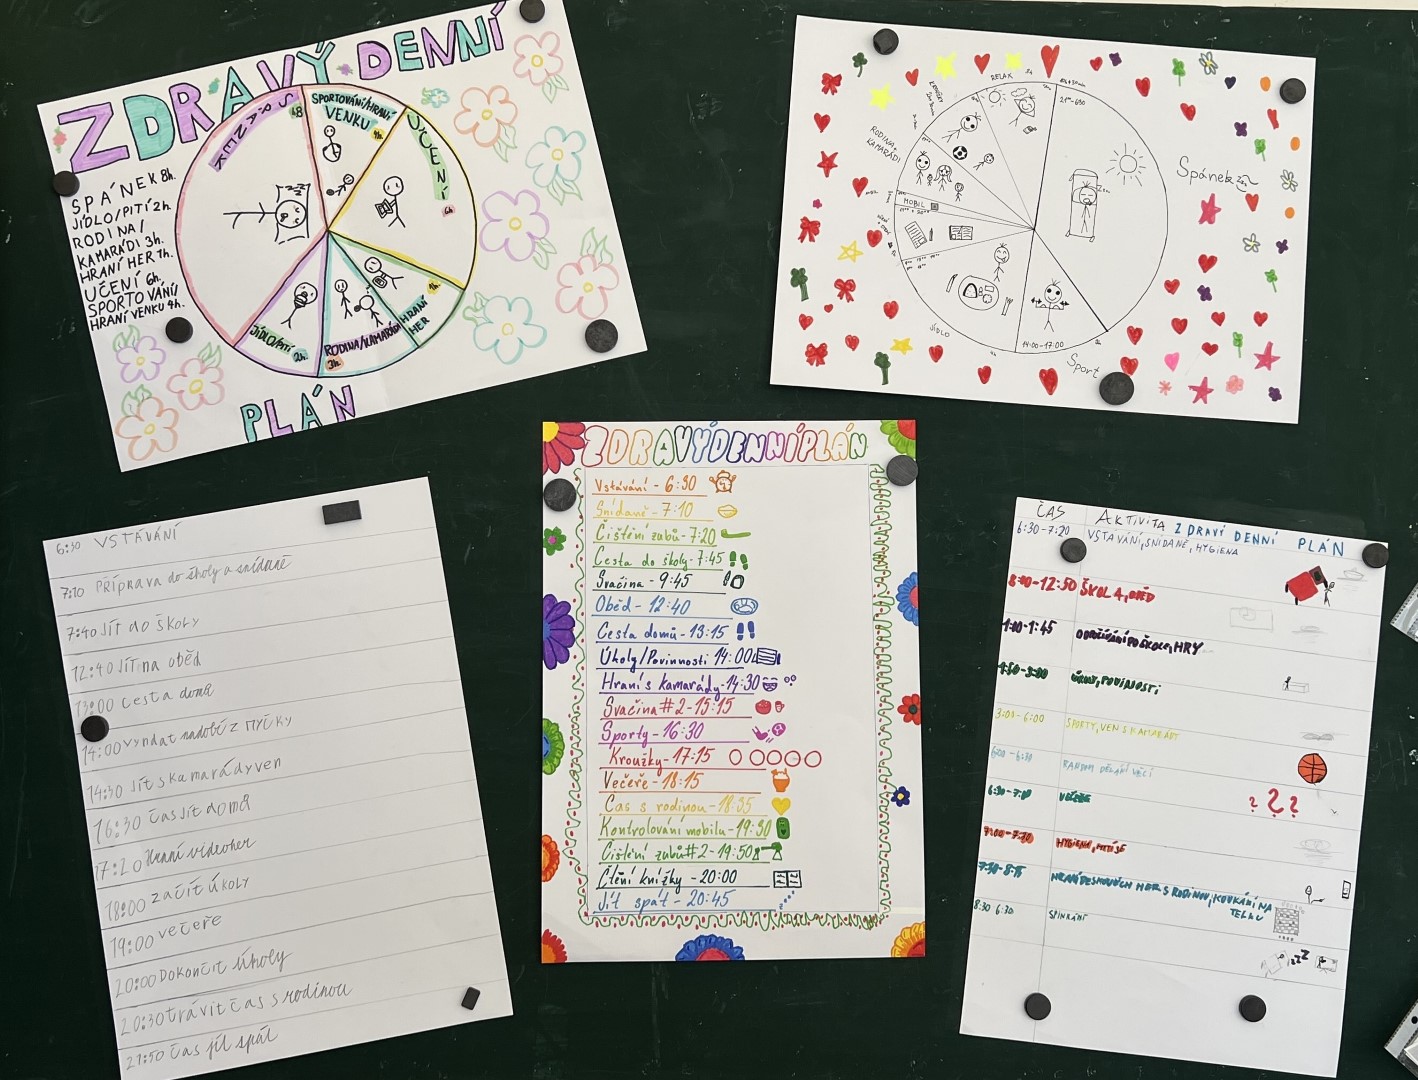 ZDRAVÝ DENNÍ
SPÁNEK 8h.
JÍDLO/PITÍ 2h.
RODINA/
KAMARÁDI 3h.
HRANÍ HER 1h.
UČENÍ 6h.
SPORTOVÁNÍ/
HRANÍ VENKU 4h.
SPÁNEK
8h
SPORTOVÁNÍ/HRANÍ
VENKU
4h.
UČENÍ
6h
HRANÍ
HER
1h.
RODINA/KAMARÁDI
3h.
JÍDLO/PITÍ
2h.
PLÁN
RELAX 2h
21:00-6:30
RODINA,
KAMARÁDI
MOBIL
JÍDLO
14:00-17:00
Sport
Spánek
6:30 VSTÁVÁNÍ
7:10 PŘÍPRAVA do školy a snídaně
7:40 Jít do školy
12:40 Jít na oběd
13:00 cesta domů
14:00 vyndat nádobí z MYČKY
14:30 Jít s kamarády ven
16:30 čas jít domů
17:20 Hraní videoher
18:00 začít úkoly
19:00 večeře
20:00 DOKONČIT úkoly
20:30 trávit čas s rodinou
21:50 čas jít spát
ZDRAVÝ DENNÍ PLÁN
Vstávání - 6:30
Snídaně - 7:10
Čištění zubů - 7:20
Cesta do školy - 7:45
Svačina - 9:45
Oběd - 12:40
Cesta domů - 13:15
Úkoly/Povinnosti 14:00
Hraní s kamarády - 14:30
Svačina #2 - 15:15
Sporty - 16:30
Kroužky - 17:15
Večeře - 18:15
Čas s rodinou - 18:35
Kontrolování mobilu - 19:30
Čištění zubů #2 - 19:50
Čtění knížky - 20:00
Jít spát - 20:45
ČAS AKTIVITA ZDRAVÍ DENNÍ PLÁN
6:30-7:20 VSTÁVÁNÍ, SNÍDANĚ, HYGIENA
8:00-12:50 ŠKOLA, OBĚD
1:00-1:45 ODPOČÍVÁNÍ PO ŠKOLE, HRY
1:50-3:00 ÚKOLY, POVINOSTI
3:00-6:00 SPORTY, VEN S KAMARÁDY
6:00-6:30 RANDOM DĚLÁNÍ VĚCÍ
6:30-7:00 VEČEŘE
???
7:00-7:30 HYGIENA,
7:30-8:15 HRANÍ DESKOVÝCH HER S RODINOU, KOUKÁNÍ NA
TELKU
8:30 6:30 SPINKÁNÍ
zzz